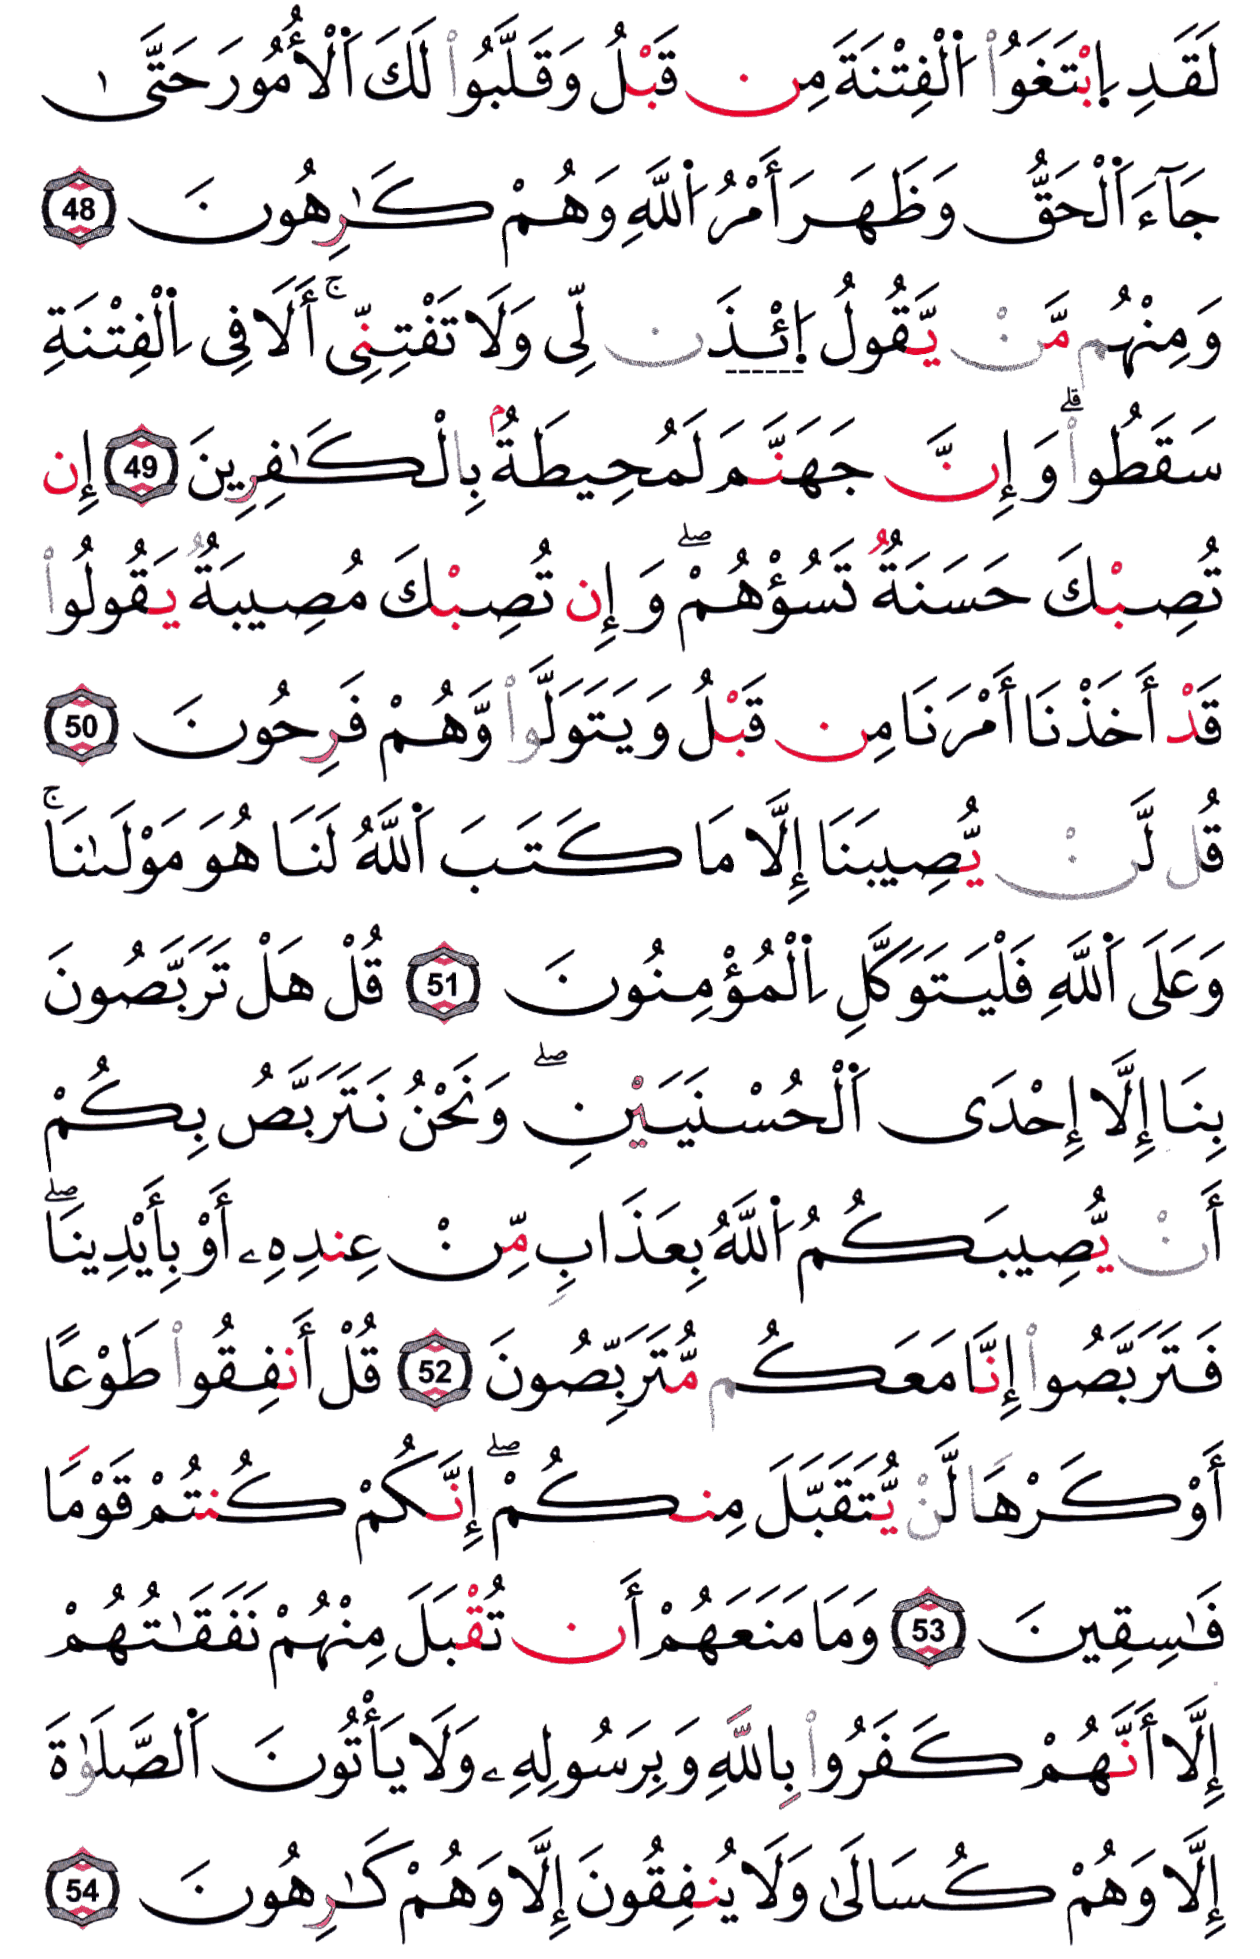 لَقَدِ اِ۪بْتَغَوُاْ اُ۬لْفِتْنَةَ مِن قَبْلُ وَقَلَّبُواْ لَكَ اَ۬لْأُمُورَ حَتَّىٰ
جَآءَ اَ۬لْحَقُّ وَظَهَرَ أَمْرُ اُ۬للَّهِ وَهُمْ كَٰرِهُونَ 48
وَمِنْهُم مَّنْ يَّقُولُ اُ۪ئْذَن لِّى وَلَا تَفْتِنِّىٓۚ أَلَا فِى اِ۬لْفِتْنَةِ
سَقَطُواْۗ وَإِنَّ جَهَنَّمَ لَمُحِيطَةُۢ بِالْكَٰفِرِينَ 49 إِن
تُصِبْكَ حَسَنَةٌ تَسُؤْهُمْۖ وَإِن تُصِبْكَ مُصِيبَةٌ يَقُولُواْ
قَدْ أَخَذْنَا أَمْرَنَا مِن قَبْلُ وَيَتَوَلَّواْ وَّهُمْ فَرِحُونَ 50
قُل لَّنْ يُّصِيبَنَا إِلَّا مَا كَتَبَ اَ۬للَّهُ لَنَا هُوَ مَوْلَىٰنَاۚ
وَعَلَى اَ۬للَّهِ فَلْيَتَوَكَّلِ اِ۬لْمُؤْمِنُونَ 51 قُلْ هَلْ تَرَبَّصُونَ
بِنَا إِلَّا إِحْدَى اَ۬لْحُسْنَيَيْنِۖ وَنَحْنُ نَتَرَبَّصُ بِكُمْ
أَنْ يُّصِيبَكُمُ اُ۬للَّهُ بِعَذَابٍ مِّنْ عِندِهِۦ أَوْ بِأَيْدِينَاۖ
فَتَرَبَّصُواْ إِنَّا مَعَكُم مُّتَرَبِّصُونَ 52 قُلْ أَنفِقُواْ طَوْعًا
أَوْ كَرْهًا لَّنْ يُّتَقَبَّلَ مِنكُمْۖ إِنَّكُمْ كُنتُمْ قَوْمًا
فَٰسِقِينَ 53 وَمَا مَنَعَهُمْ أَن تُقْبَلَ مِنْهُمْ نَفَقَٰتُهُمْ
إِلَّا أَنَّهُمْ كَفَرُواْ بِاللَّهِ وَبِرَسُولِهِۦ وَلَا يَأْتُونَ اَ۬لصَّلَوٰةَ
إِلَّا وَهُمْ كُسَالَىٰ وَلَا يُنفِقُونَ إِلَّا وَهُمْ كَٰرِهُونَ 54